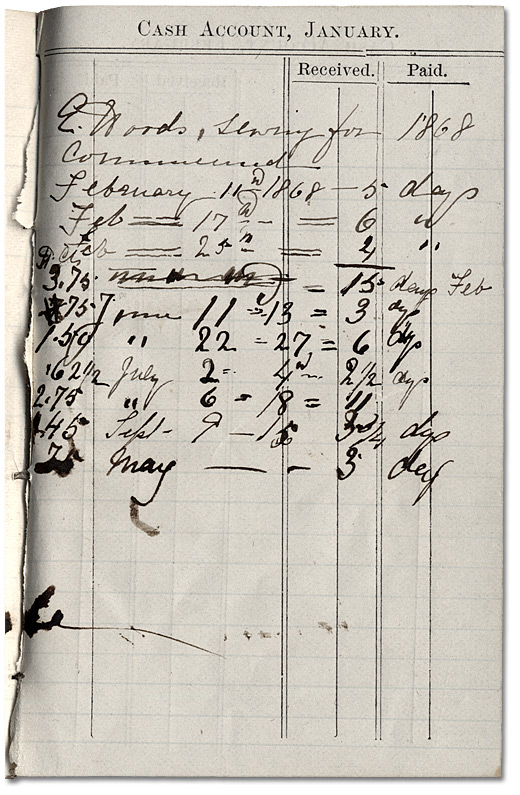 CASH ACCOUNT, JANUARY.
Received. Paid.
E. Woods, sewing for 1868
Commenced
February 11th 1868 — 5 days
Feb — 17th — = 6 "
Feb — 25th = 4 "
3.75 = 15 days Feb
.75 June 11 = 13 = 3 dys
1.50 " 22 = 27 = 6 dys
.62 1/2 July 2 = 4th 2 1/2 dys
2.75 " 6 = 18 = 11
Sept - 9 — 15 dys
May — - 3 day